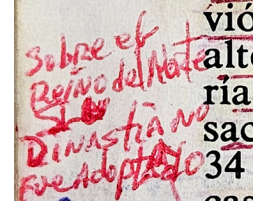 sobre el
Reino del Norte
Su
DINASTIA NO
FUE ADOPTADO
vió
alte
ría
sac
34